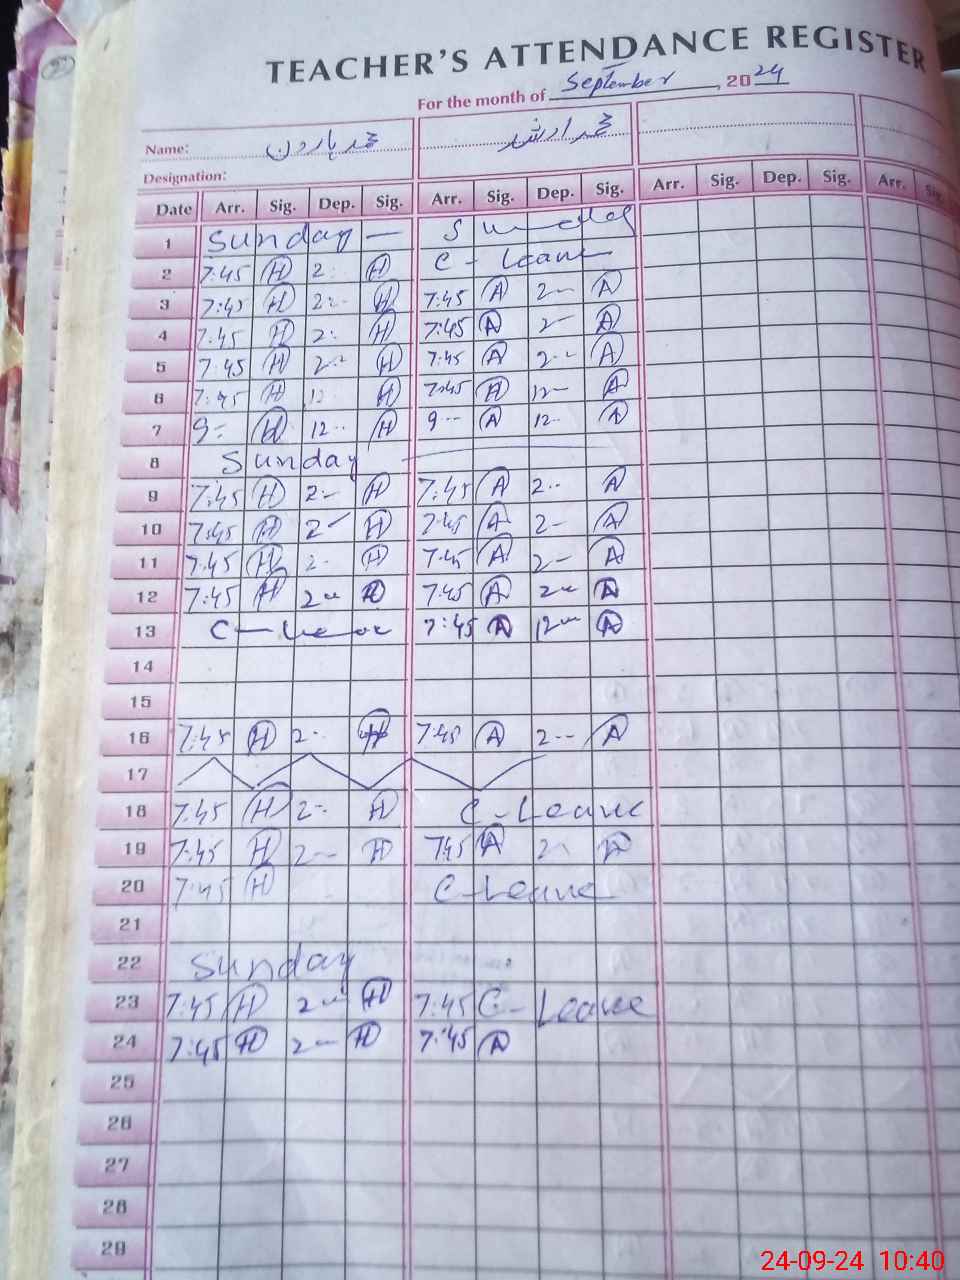 TEACHER'S ATTENDANCE REGISTER
For the month of September, 2024
Name: محمد ہارون محمد ارشد
Designation:
Date Arr. Sig. Dep. Sig. Arr. Sig. Dep. Sig. Arr. Sig. Dep. Sig. Arr. Sig.
1 Sunday — Sunday
2 7:45 H 2- H C-Leave
3 7:45 H 2-- H 7:45 A 2-- A
4 7:45 H 2- H 7:45 A 2- A
5 7:45 H 2-- H 7:45 A 2-- A
6 7:45 H 12 H 7:45 A 12- A
7 9- H 12-- H 9-- A 12-- A
8 Sunday
9 7:45 H 2-- H 7:45 A 2-- A
10 7:45 H 2- H 7:45 A 2- A
11 7:45 H 2- H 7:45 A 2- A
12 7:45 H 2-- H 7:45 A 2-- A
13 C-Leave 7:45 A 12-- A
14
15
16 7:45 H 2-- H 7:45 A 2-- A
17
18 7:45 H 2-- H C-Leave
19 7:45 H 2-- H 7:45 A 2- A
20 7:45 H C-Leave
21
22 Sunday
23 7:45 H 2-- H 7:45 C-Leave
24 7:45 H 2-- H 7:45 A
25
26
27
28
29
24-09-24 10:40